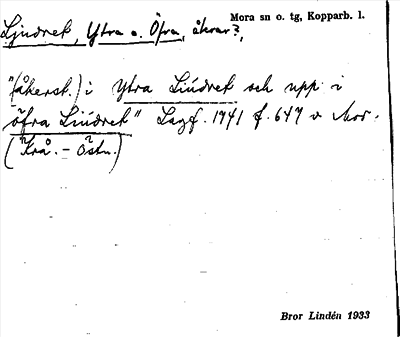 Mora sn o. tg, Kopparb. l.
Ljudrek, Yttra o. Öfra, åkrar?,
"(åkerst.) i Yttra Liúdrek och upp i
öfra Liúdrek" Lagf. 1741 f. 647 v Mor.
(Krå. - Östn.)
Bror Lindén 1933